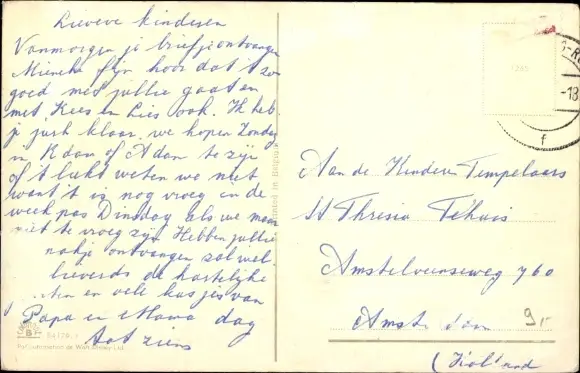 Lieveve kinderen
Vanmorgen je briefje ontvangen
Mieneke fijn hoor dat 't zo
goed met jullie gaat en
met Kees en Lies ook. Ik heb
je jurk klaar, we hopen Zondag
in R dam of A dam te zijn
of 't lukt weten we niet
want 't is nog vroeg in de
week pas Dinsdag als we maar
niet te vroeg zijn Hebben jullie
ontvangen zal wel.
lieverds de hartelijke
en vele kusjes van
Papa en Mama dag
tot ziens
Aan de Kinderen Tempelaars
St Thresia Tehuis
Amstelveenseweg 760
Amsterdam
(Holland
9,-
-18
f